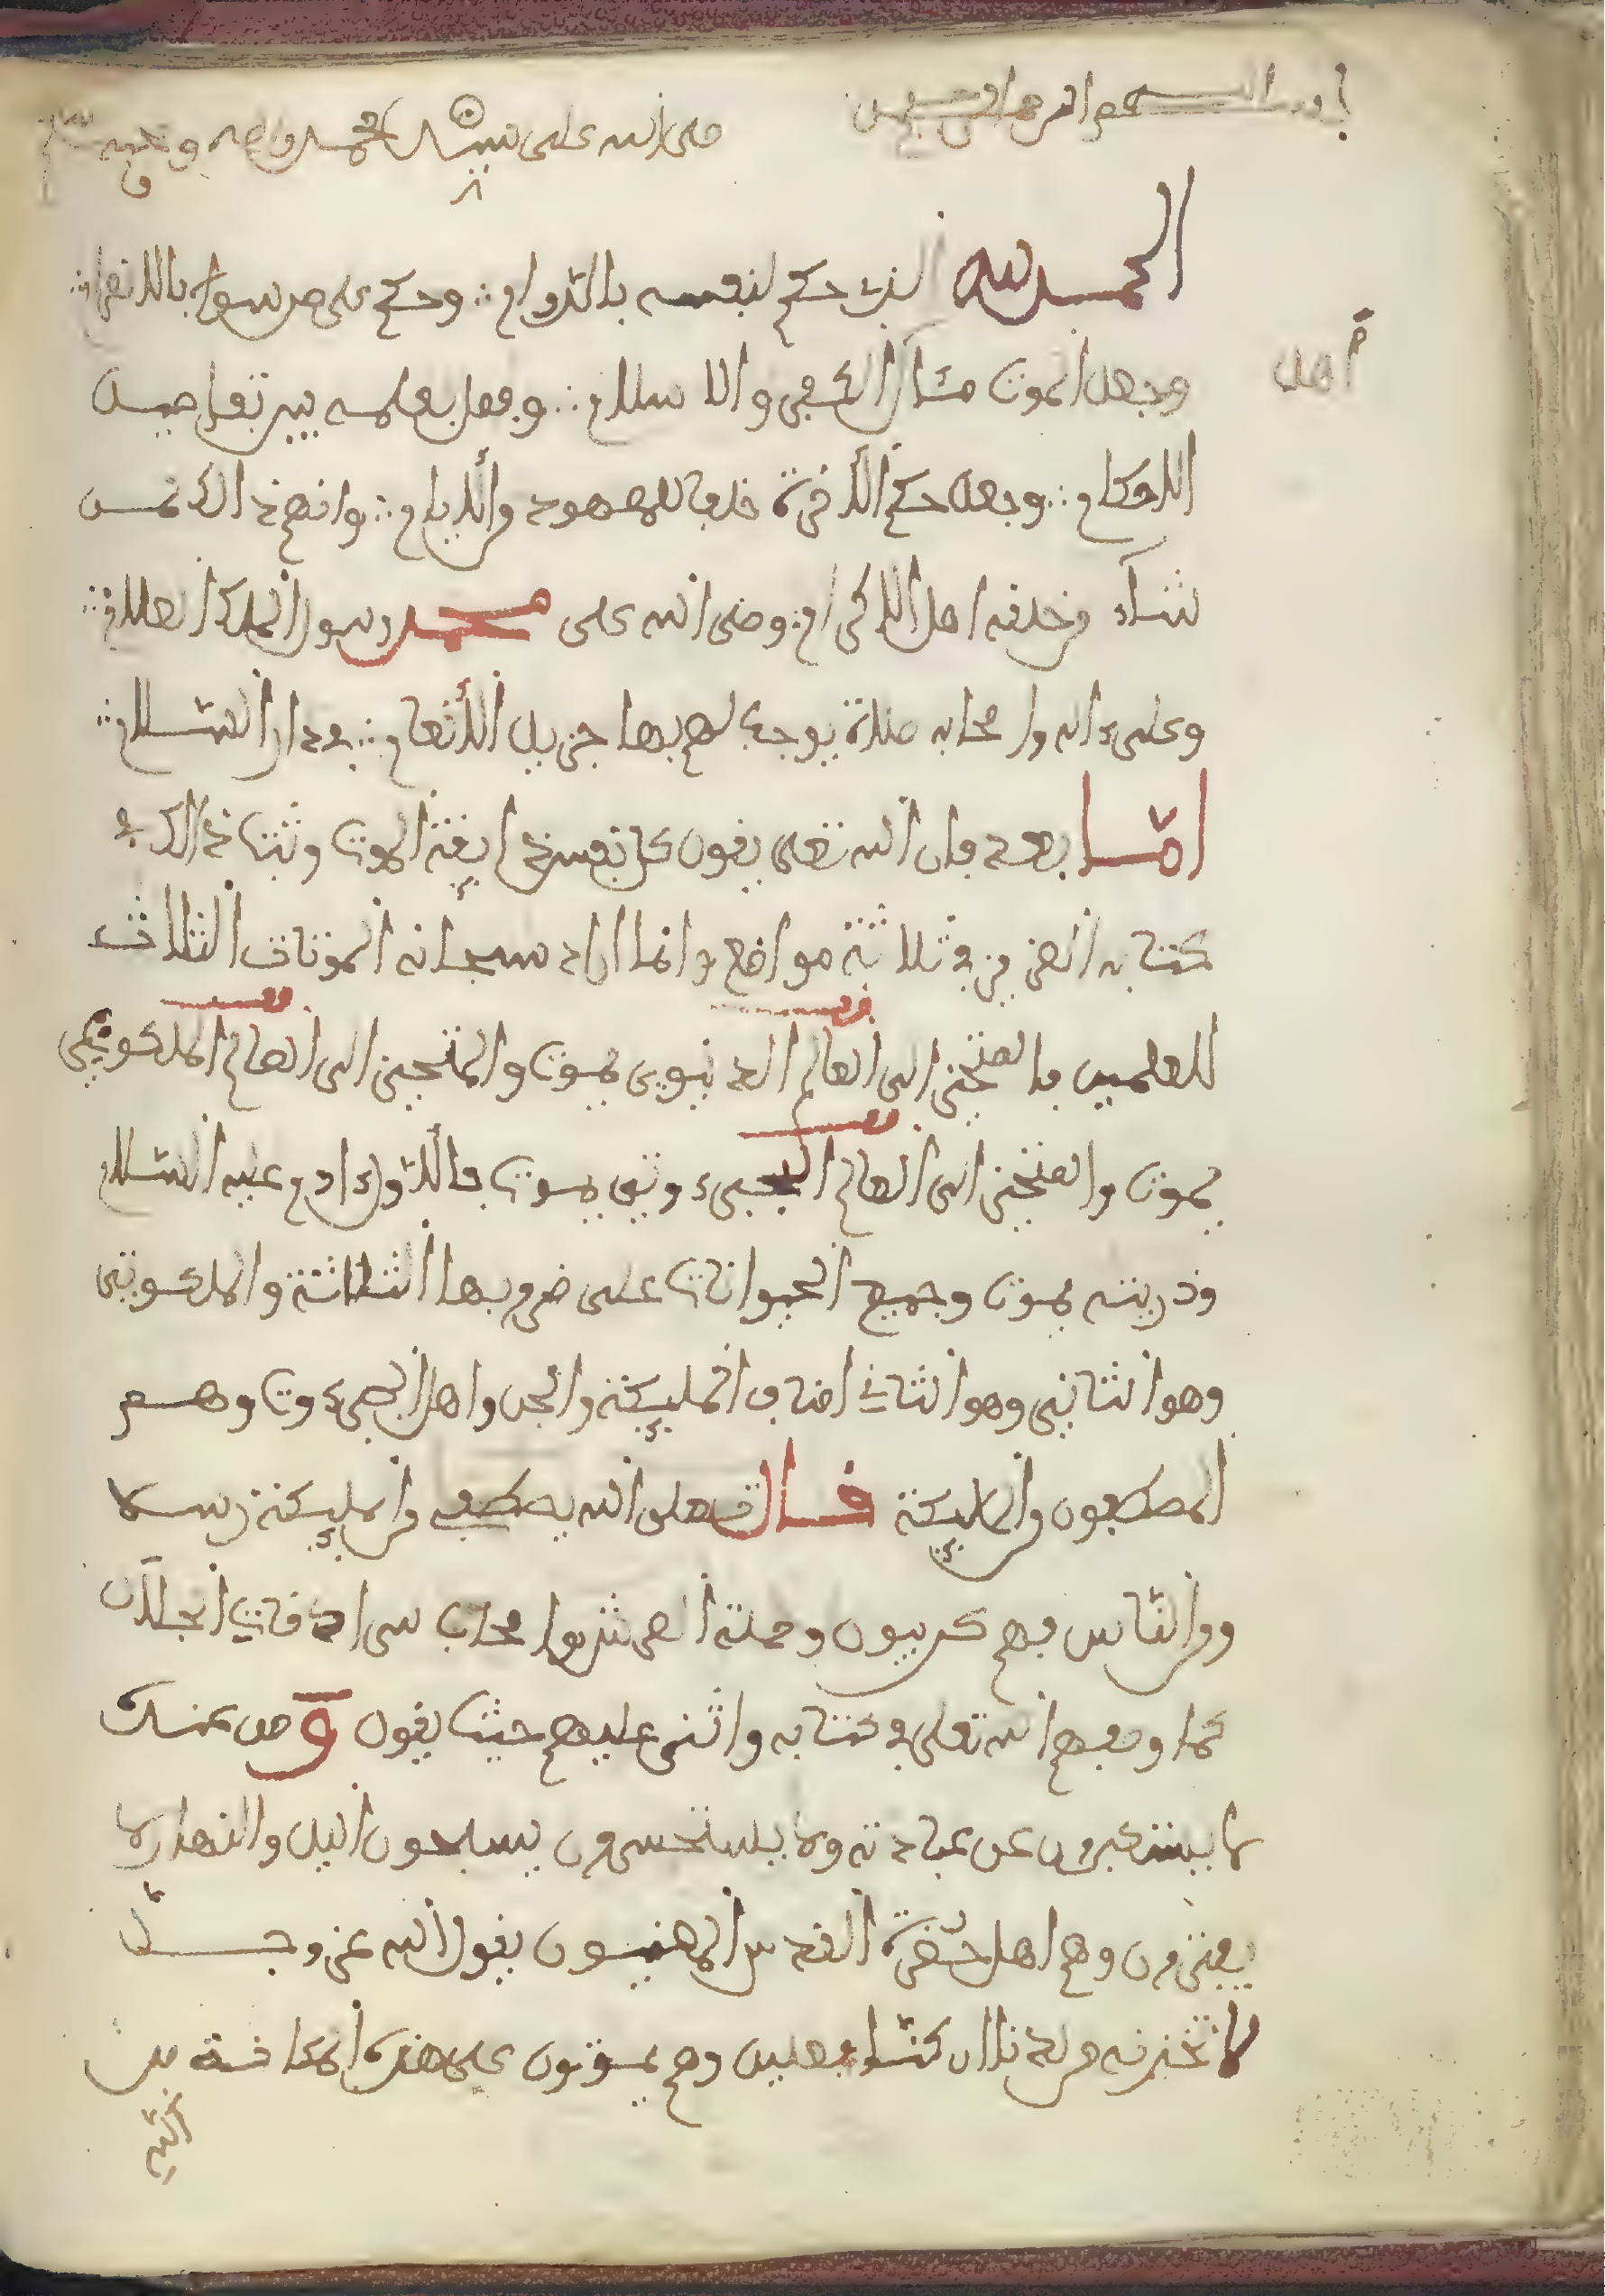 بسم الله الرحمن الرحيم صلى الله على نبينا محمد وءاله وصحبه وسلم
الحمد لله الذي حكم لنفسه بالدوام ∴ وحكم على من سواه بالانصرام ∴
وجعل الموت مئال الكفر والاسلام ∴ وفصل بعلمه بين تفاصيل
الاحكام ∴ وجعل حكم الأخرة خلفا للمعهود والأيام ∴ وانهج ذالك لمن
شآء من خلقه اهل الاكرام ∴ وصلى الله على محمد رسول الملك العلام ∴
وعلى ءاله واصحابه صلاة يوجب لهم بها جزيل الأنعام ∴ في دار السلام ∴
امّا بعد فان الله تعلى يقول كل نفس ذايقة الموت وثبت ذالك في
كتابه العزيز في ثلاثة مواضع وانما اراد سبحانه الموتات الثلاث
للعلمين فالمتحيز الى العالم الدنيوي يموت والمتحيز الى العالم الملكوتي
يموت والمتحيز الى العالم الجبروتي يموت فالأول ءادم عليه السلام
وذريته يموت وجميع الحيوانات على ضروبها الثلاثة والملكوتي
وهو الثاني وهو الثاني اصناف المليكة والجن واهل الجبروت وهم
المصطفون من المليكة قال تعلى الله يصطفي من المليكة رسلا
ومن الناس فهم كربيون وحملة العرش واصحاب سرادقات الجلال
كما وصفهم الله تعلى في كتابه واثنى عليهم حيث يقول ومن عنده
لا يستكبرون عن عبادته ولا يستحسرون يسبحون اليل والنهار لا
يفترون وهم اهل حضرة القدس المعنيون بقول الله عز وجل
لاتخذنه من لدنا ان كنا فعلين وهم يموتون على هذه المكانة من
الله